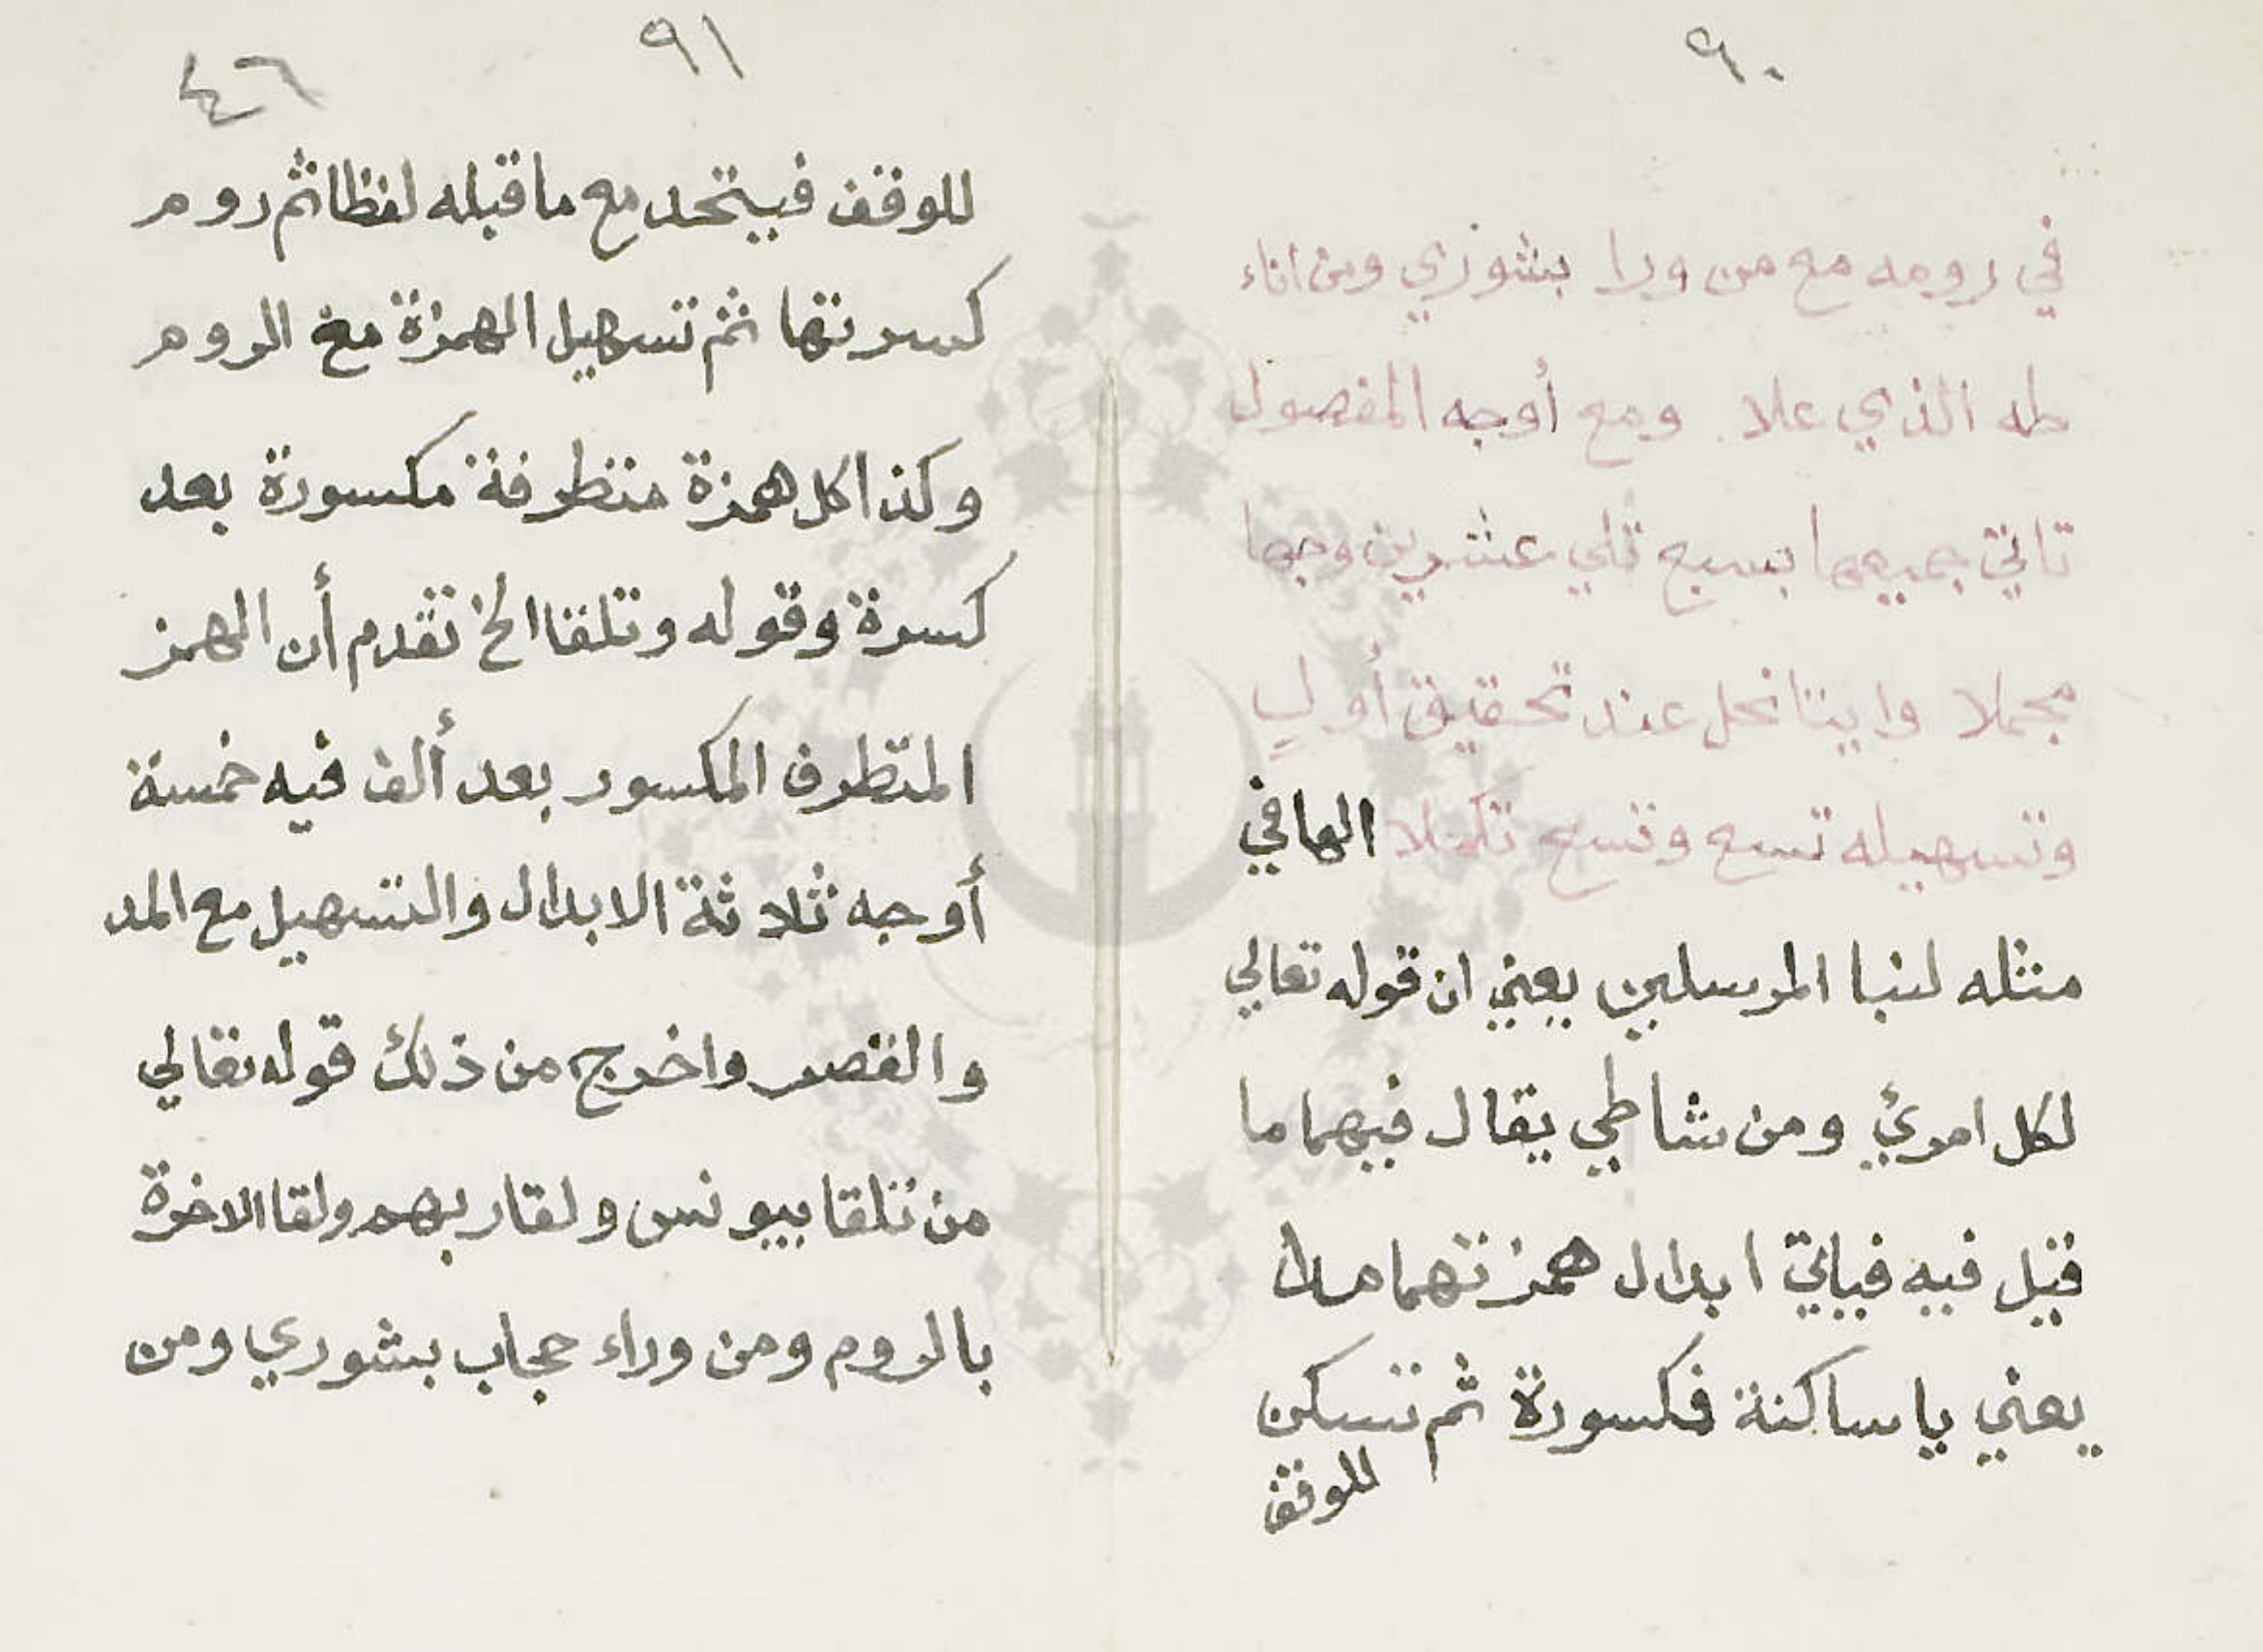 ٩٠
في رومه مع من ورا بشوري ومن اناء
طه الذي علا ومع أوجه المفصول
تاتي جميعها بسبع تلي عشرين وجها
مجملا وايتا نحل عند تحقيق أول
وتسهيله تسع وتسع تكملا الهافي
مثله لنبا المرسلين يعني ان قوله تعالي
لكل امرئ ومن شاطي يقال فيهما ما
قيل فيه فياتي ابدال همزتهما مدا
يعني يا ساكنة فمكسورة ثم تسكن
للوقف
٩١
٤٦
للوقف فيتحد مع ما قبله لفظا ثم روم
كسرتها ثم تسهيل الهمزة مع الروم
وكذا كل همزة متطرفة مكسورة بعد
كسرة وقوله وتلقا الخ تقدم أن الهمز
المتطرف المكسور بعد ألف فيه خمسة
أوجه ثلاثة الابدال والتسهيل مع المد
والقصر واخرج من ذلك قوله تعالي
من تلقا بيونس ولقا ربهم ولقا الاخرة
بالروم ومن وراء حجاب بشوري ومن